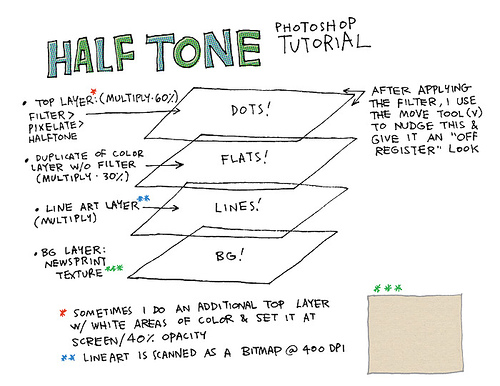 HALF TONE
PHOTOSHOP
TUTORIAL
• TOP LAYER:* (MULTIPLY·60%)
FILTER>
PIXELATE>
HALFTONE
DOTS!
AFTER APPLYING
THE FILTER, I USE
THE MOVE TOOL(V)
TO NUDGE THIS &
GIVE IT AN "OFF
REGISTER" LOOK
• DUPLICATE OF COLOR
LAYER W/O FILTER
(MULTIPLY · 30%)
FLATS!
• LINE ART LAYER**
(MULTIPLY)
LINES!
• BG LAYER:
NEWSPRINT
TEXTURE***
BG!
* SOMETIMES I DO AN ADDITIONAL TOP LAYER
W/ WHITE AREAS OF COLOR & SET IT AT
SCREEN/40% OPACITY
** LINEART IS SCANNED AS A BITMAP @ 400 DPI
***